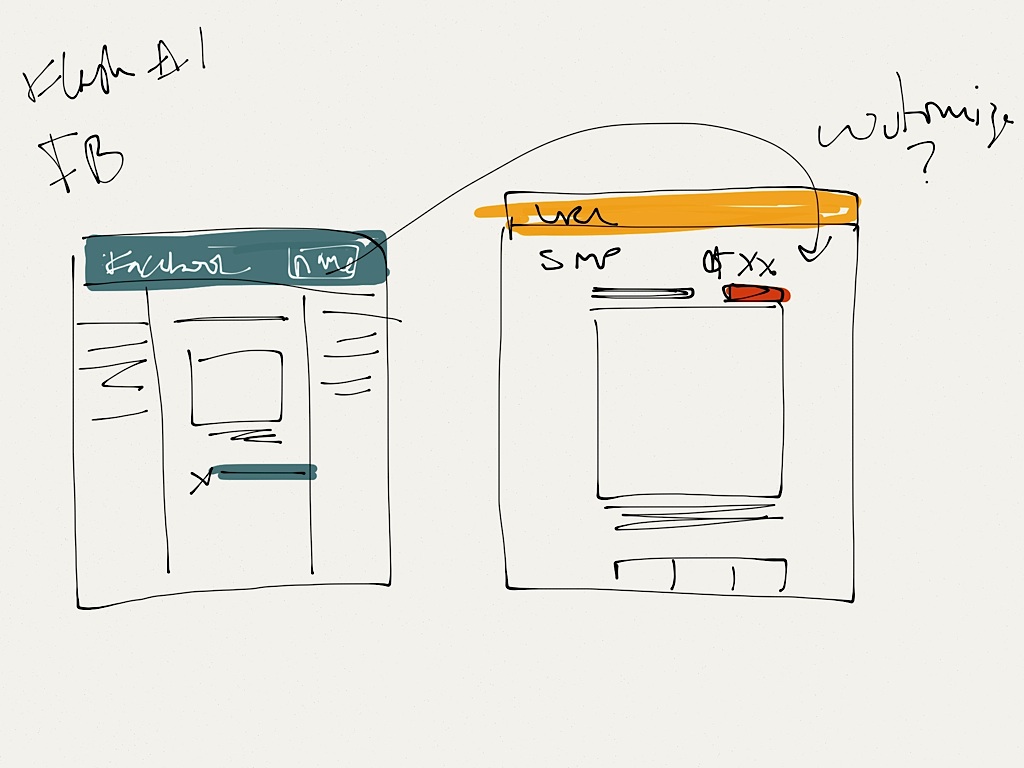 Flash A1
FB
customize
?
Facebook name
URL
SMP $XX